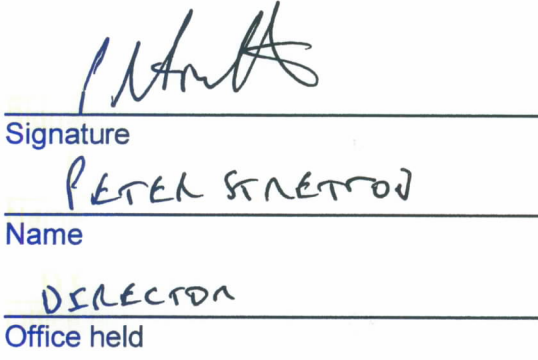 Signature
PETER STRETTON
Name
DIRECTOR
Office held